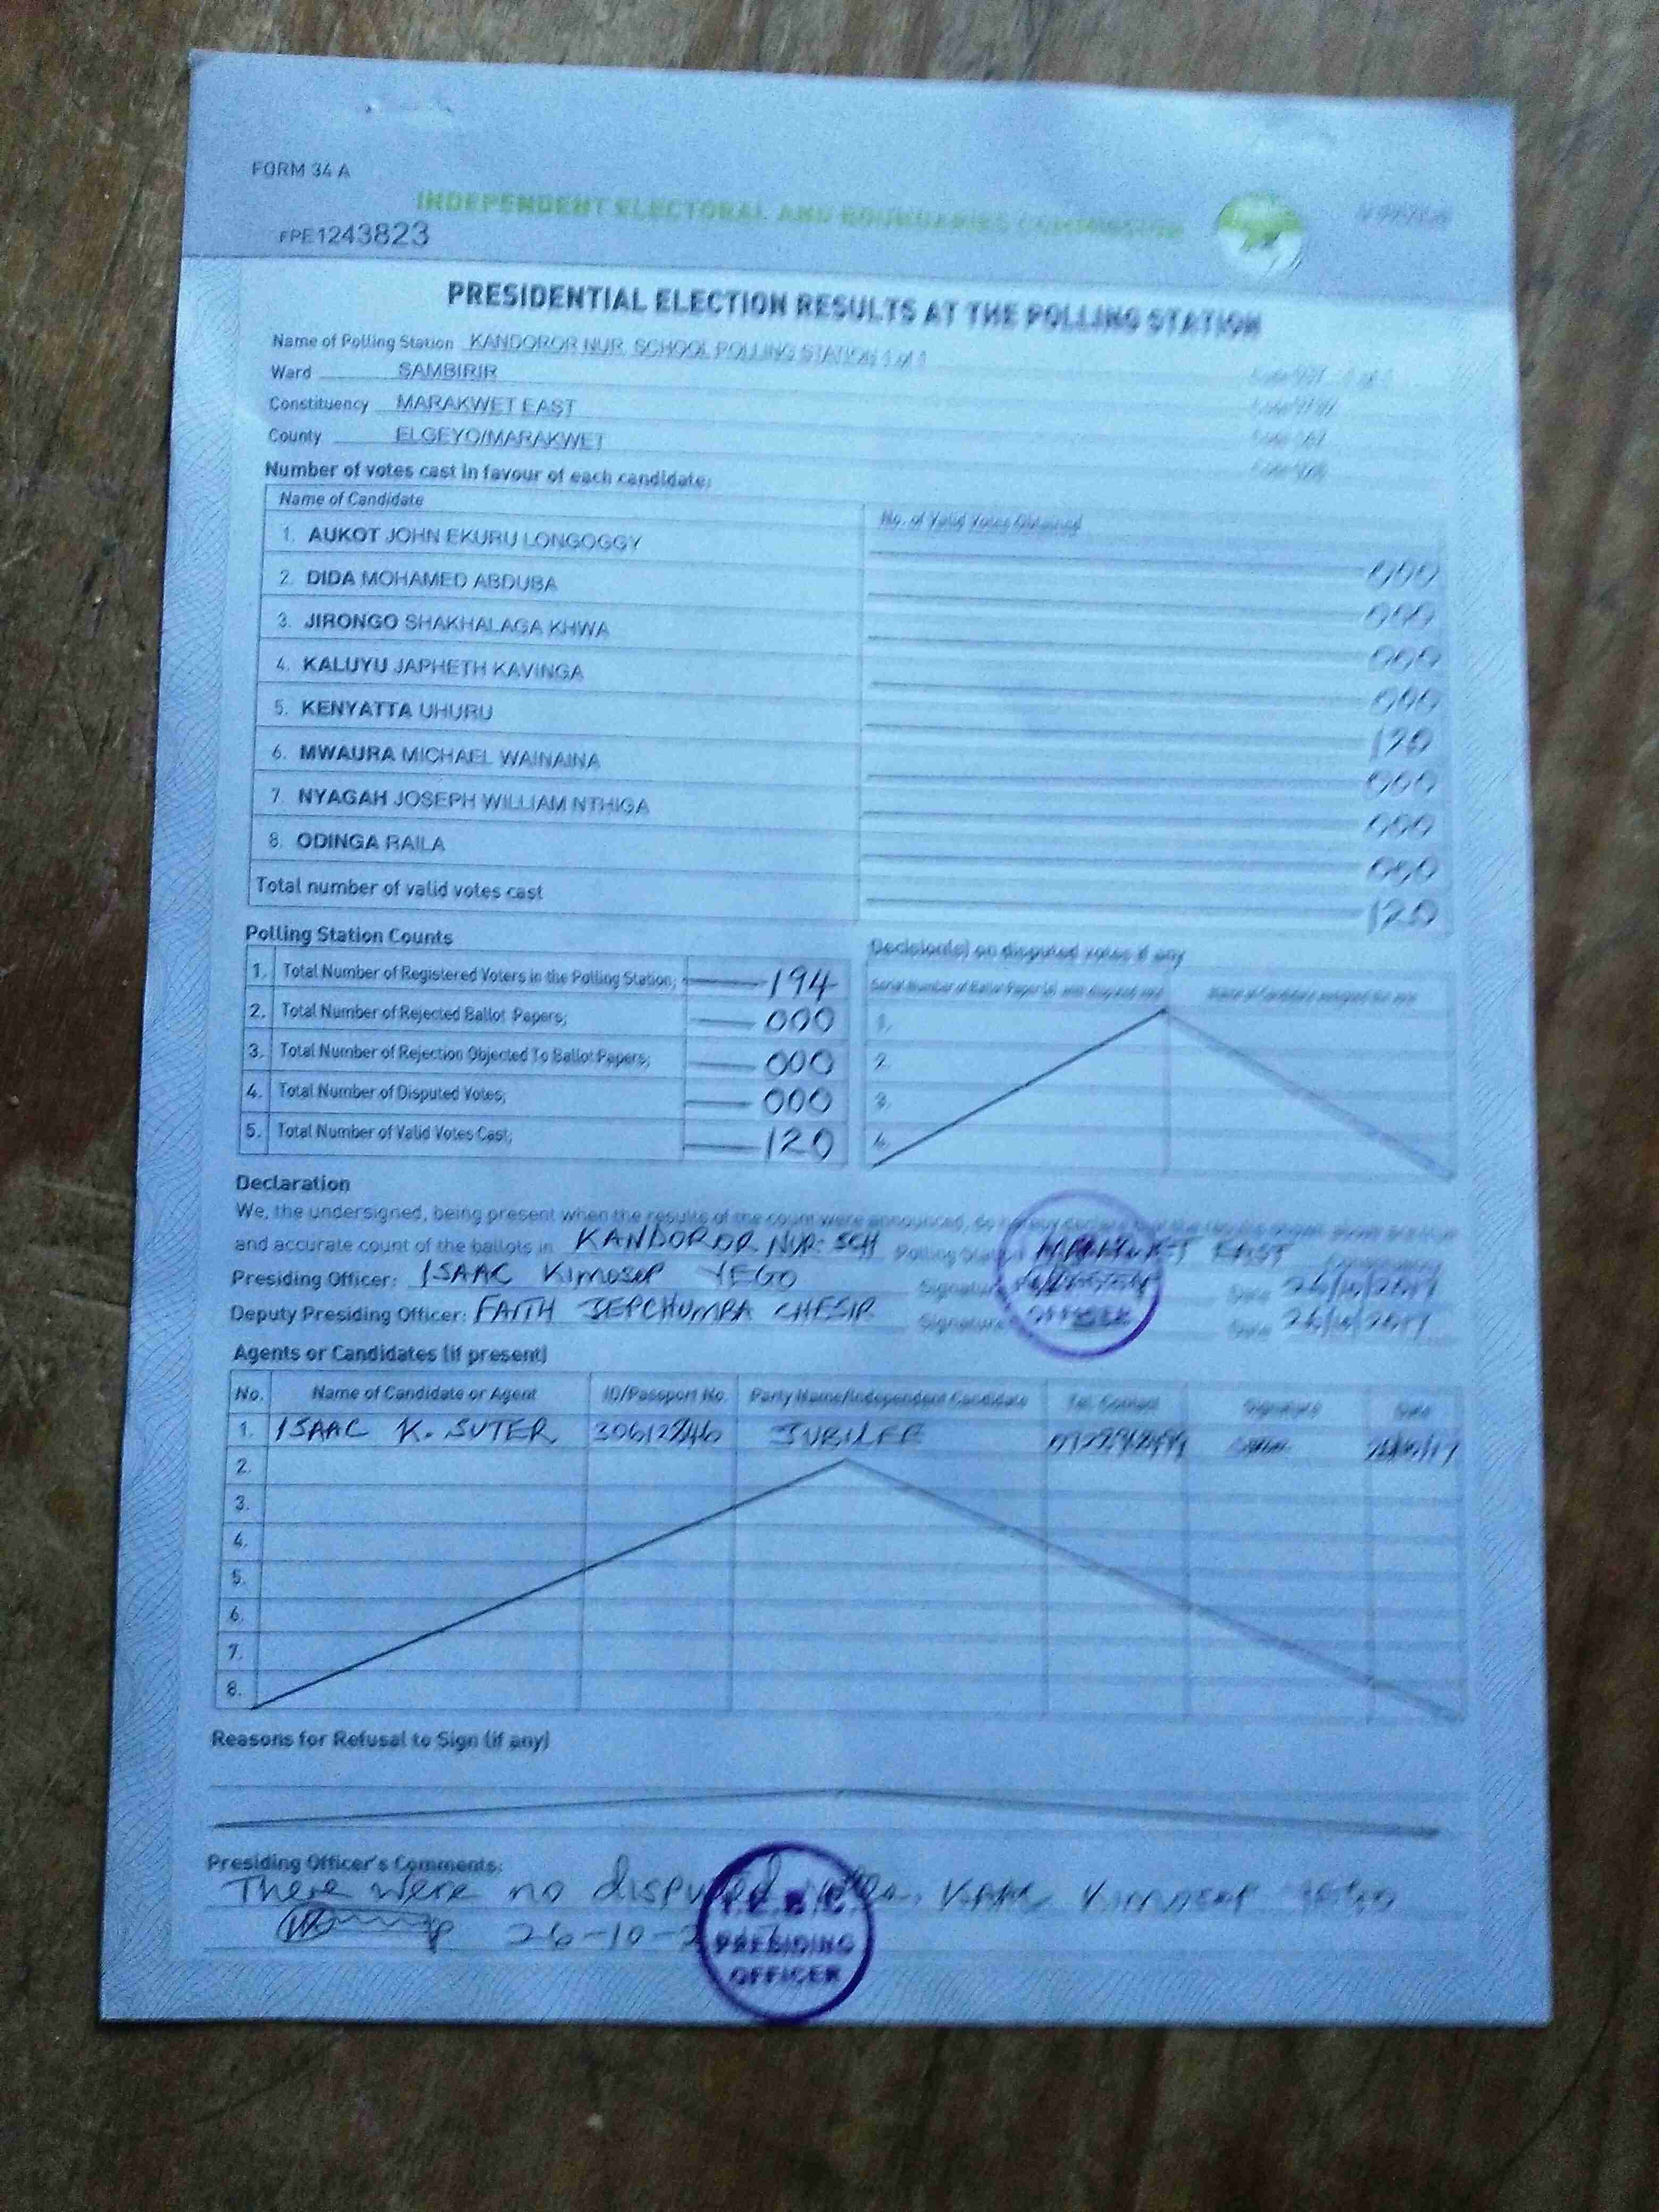 FORM 34 A
INDEPENDENT ELECTORAL AND BOUNDARIES COMMISSION
FPE1243823
PRESIDENTIAL ELECTION RESULTS AT THE POLLING STATION
Name of Polling Station KANDOROR NUR. SCHOOL POLLING STATION 1 of 1
Ward SAMBIRIR
Constituency MARAKWET EAST
County ELGEYO/MARAKWET
Number of votes cast in favour of each candidate:
Name of Candidate No. of Valid Votes Obtained
1. AUKOT JOHN EKURU LONGOGGY 000
2. DIDA MOHAMED ABDUBA 000
3. JIRONGO SHAKHALAGA KHWA 000
4. KALUYU JAPHETH KAVINGA 000
5. KENYATTA UHURU 120
6. MWAURA MICHAEL WAINAINA 000
7. NYAGAH JOSEPH WILLIAM NTHIGA 000
8. ODINGA RAILA 000
Total number of valid votes cast 120
Polling Station Counts
1. Total Number of Registered Voters in the Polling Station; 194
2. Total Number of Rejected Ballot Papers; 000
3. Total Number of Rejection Objected To Ballot Papers; 000
4. Total Number of Disputed Votes; 000
5. Total Number of Valid Votes Cast; 120
Decision(s) on disputed votes if any
1.
2.
3.
4.
Declaration
We, the undersigned, being present when the results of the count were announced, do hereby declare that the results
and accurate count of the ballots in KANDOROR NUR: SCH Polling Station MARAKWET EAST
Presiding Officer: ISAAC KIMOSOP YEGO Signature Date 26/10/2017
Deputy Presiding Officer: FAITH JEPCHUMBA CHESIR Signature Date 26/10/2017
Agents or Candidates (if present)
No. Name of Candidate or Agent ID/Passport No. Party Name/Independent Candidate Tel. Contact Signature Date
1. ISAAC K. SUTER JUBILEE 26/10/17
2.
3.
4.
5.
6.
7.
8.
Reasons for Refusal to Sign (if any)
Presiding Officer's Comments:
There were no disputed votes. ISAAC KIMOSOP YEGO
26-10-2017
I.E.B.C.
PRESIDING
OFFICER